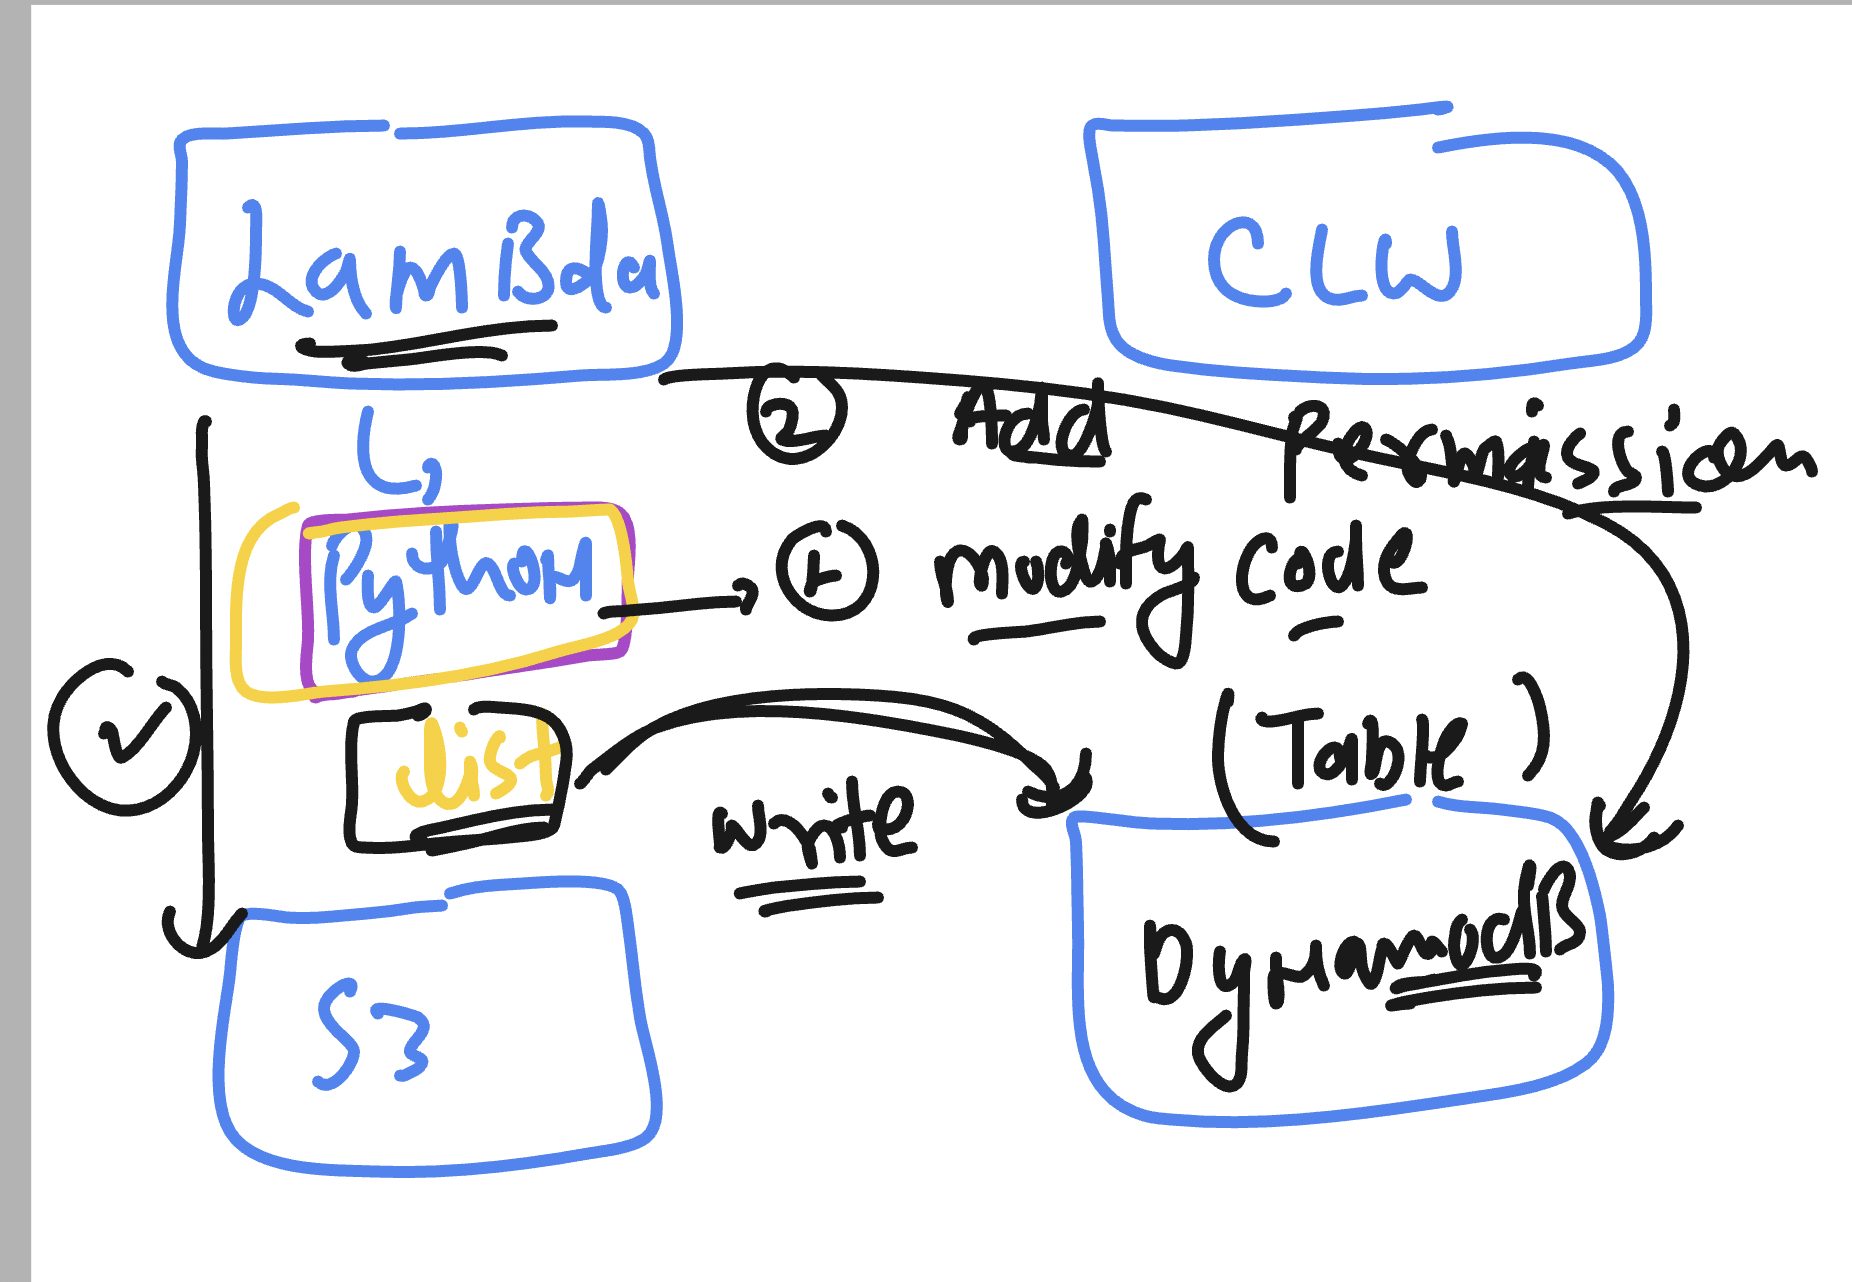 LamBda
CLW
② Add Permission
Python
① modify code
list
(Table)
write
DynamodB
S3